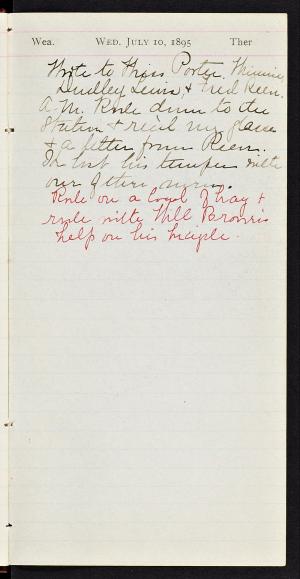 Wea. WED. JULY 10, 1895 Ther
Wrote to Miss Porter, Minnie,
Dudley Lewis & Fred Keen.
A.M. Rode down to the
Station & rec'd my
& a letter from Keen.
lost his temper with
our
Rode on a load of hay &
rode with Will Brown's
help on his bicycle.